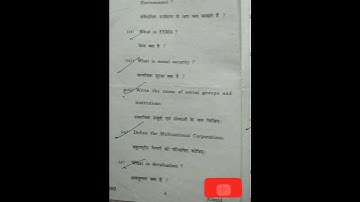 Environment ?
संवैधानिक पर्यावरण से आप क्या समझते हैं ?
(vi) What is FEMA ?
फेमा क्या है ?
(vii) What is social security ?
सामाजिक सुरक्षा क्या है ?
Write the name of social groups and
institutions.
सामाजिक समूहों एवं संस्थाओं के नाम लिखिए।
(ix) Define the Multinational Corporations.
बहुराष्ट्रीय निगमों को परिभाषित कीजिए।
(x) What is devaluation ?
अवमूल्यन क्या है ?